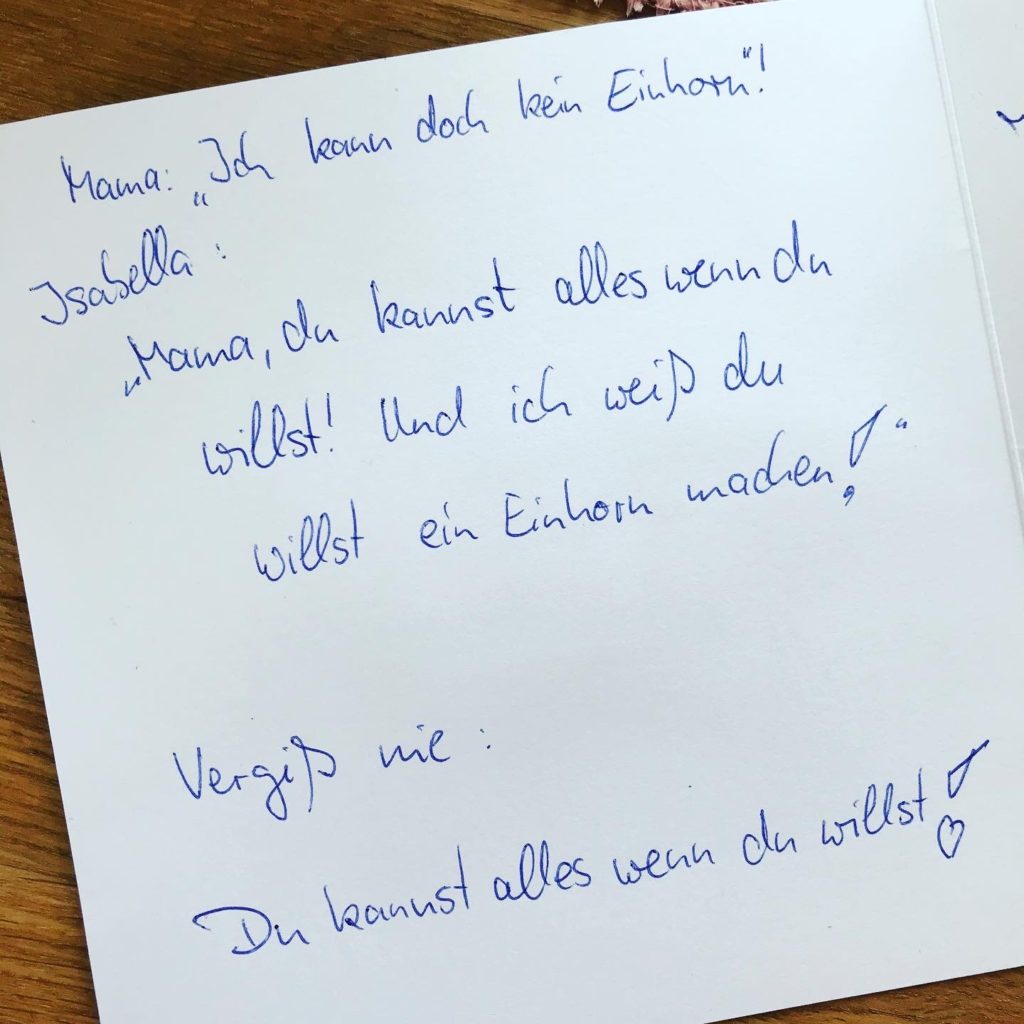 Mama: „Ich kann doch kein Einhorn"!
Isabella:
„Mama, du kannst alles wenn du
willst! Und ich weiß du
willst ein Einhorn machen!"
Vergiß nie:
Du kannst alles wenn du willst!